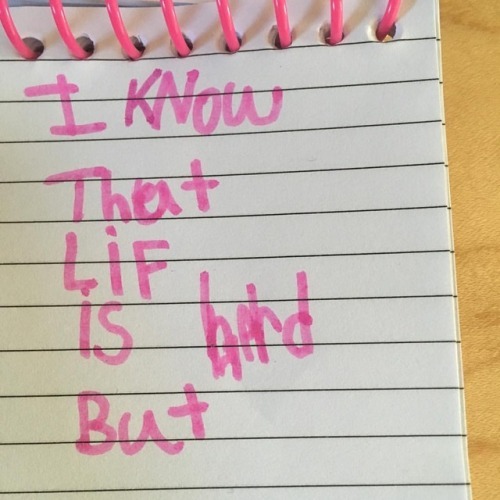 I KNOW
That
LiF
is hard
But